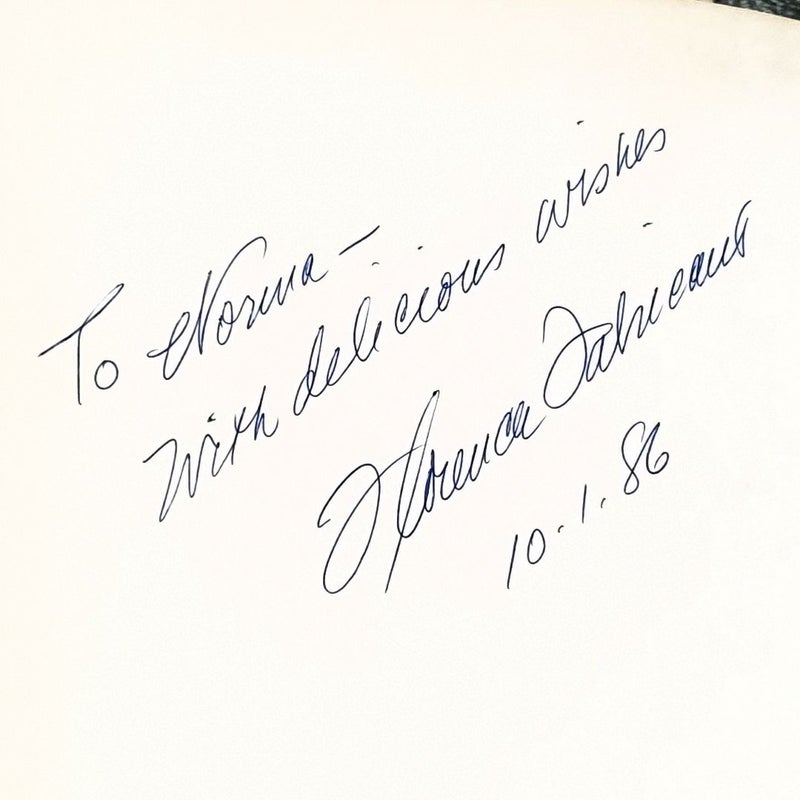 To Norma —
With delicious wishes
Florence Fabricant
10.1.86